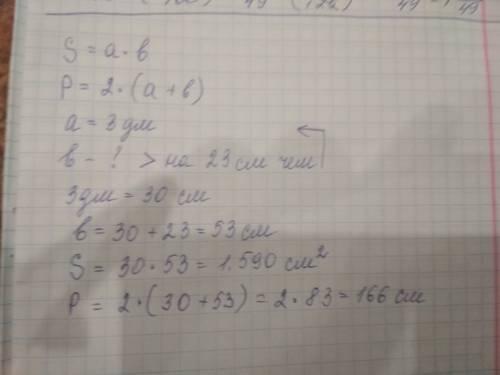 49 49 49
S = a · в
P = 2 · (a + в)
a = 3 дм
в - ! > на 23 см чем
3 дм = 30 см
в = 30 + 23 = 53 см
S = 30 · 53 = 1.590 см²
P = 2 · (30 + 53) = 2 · 83 = 166 см